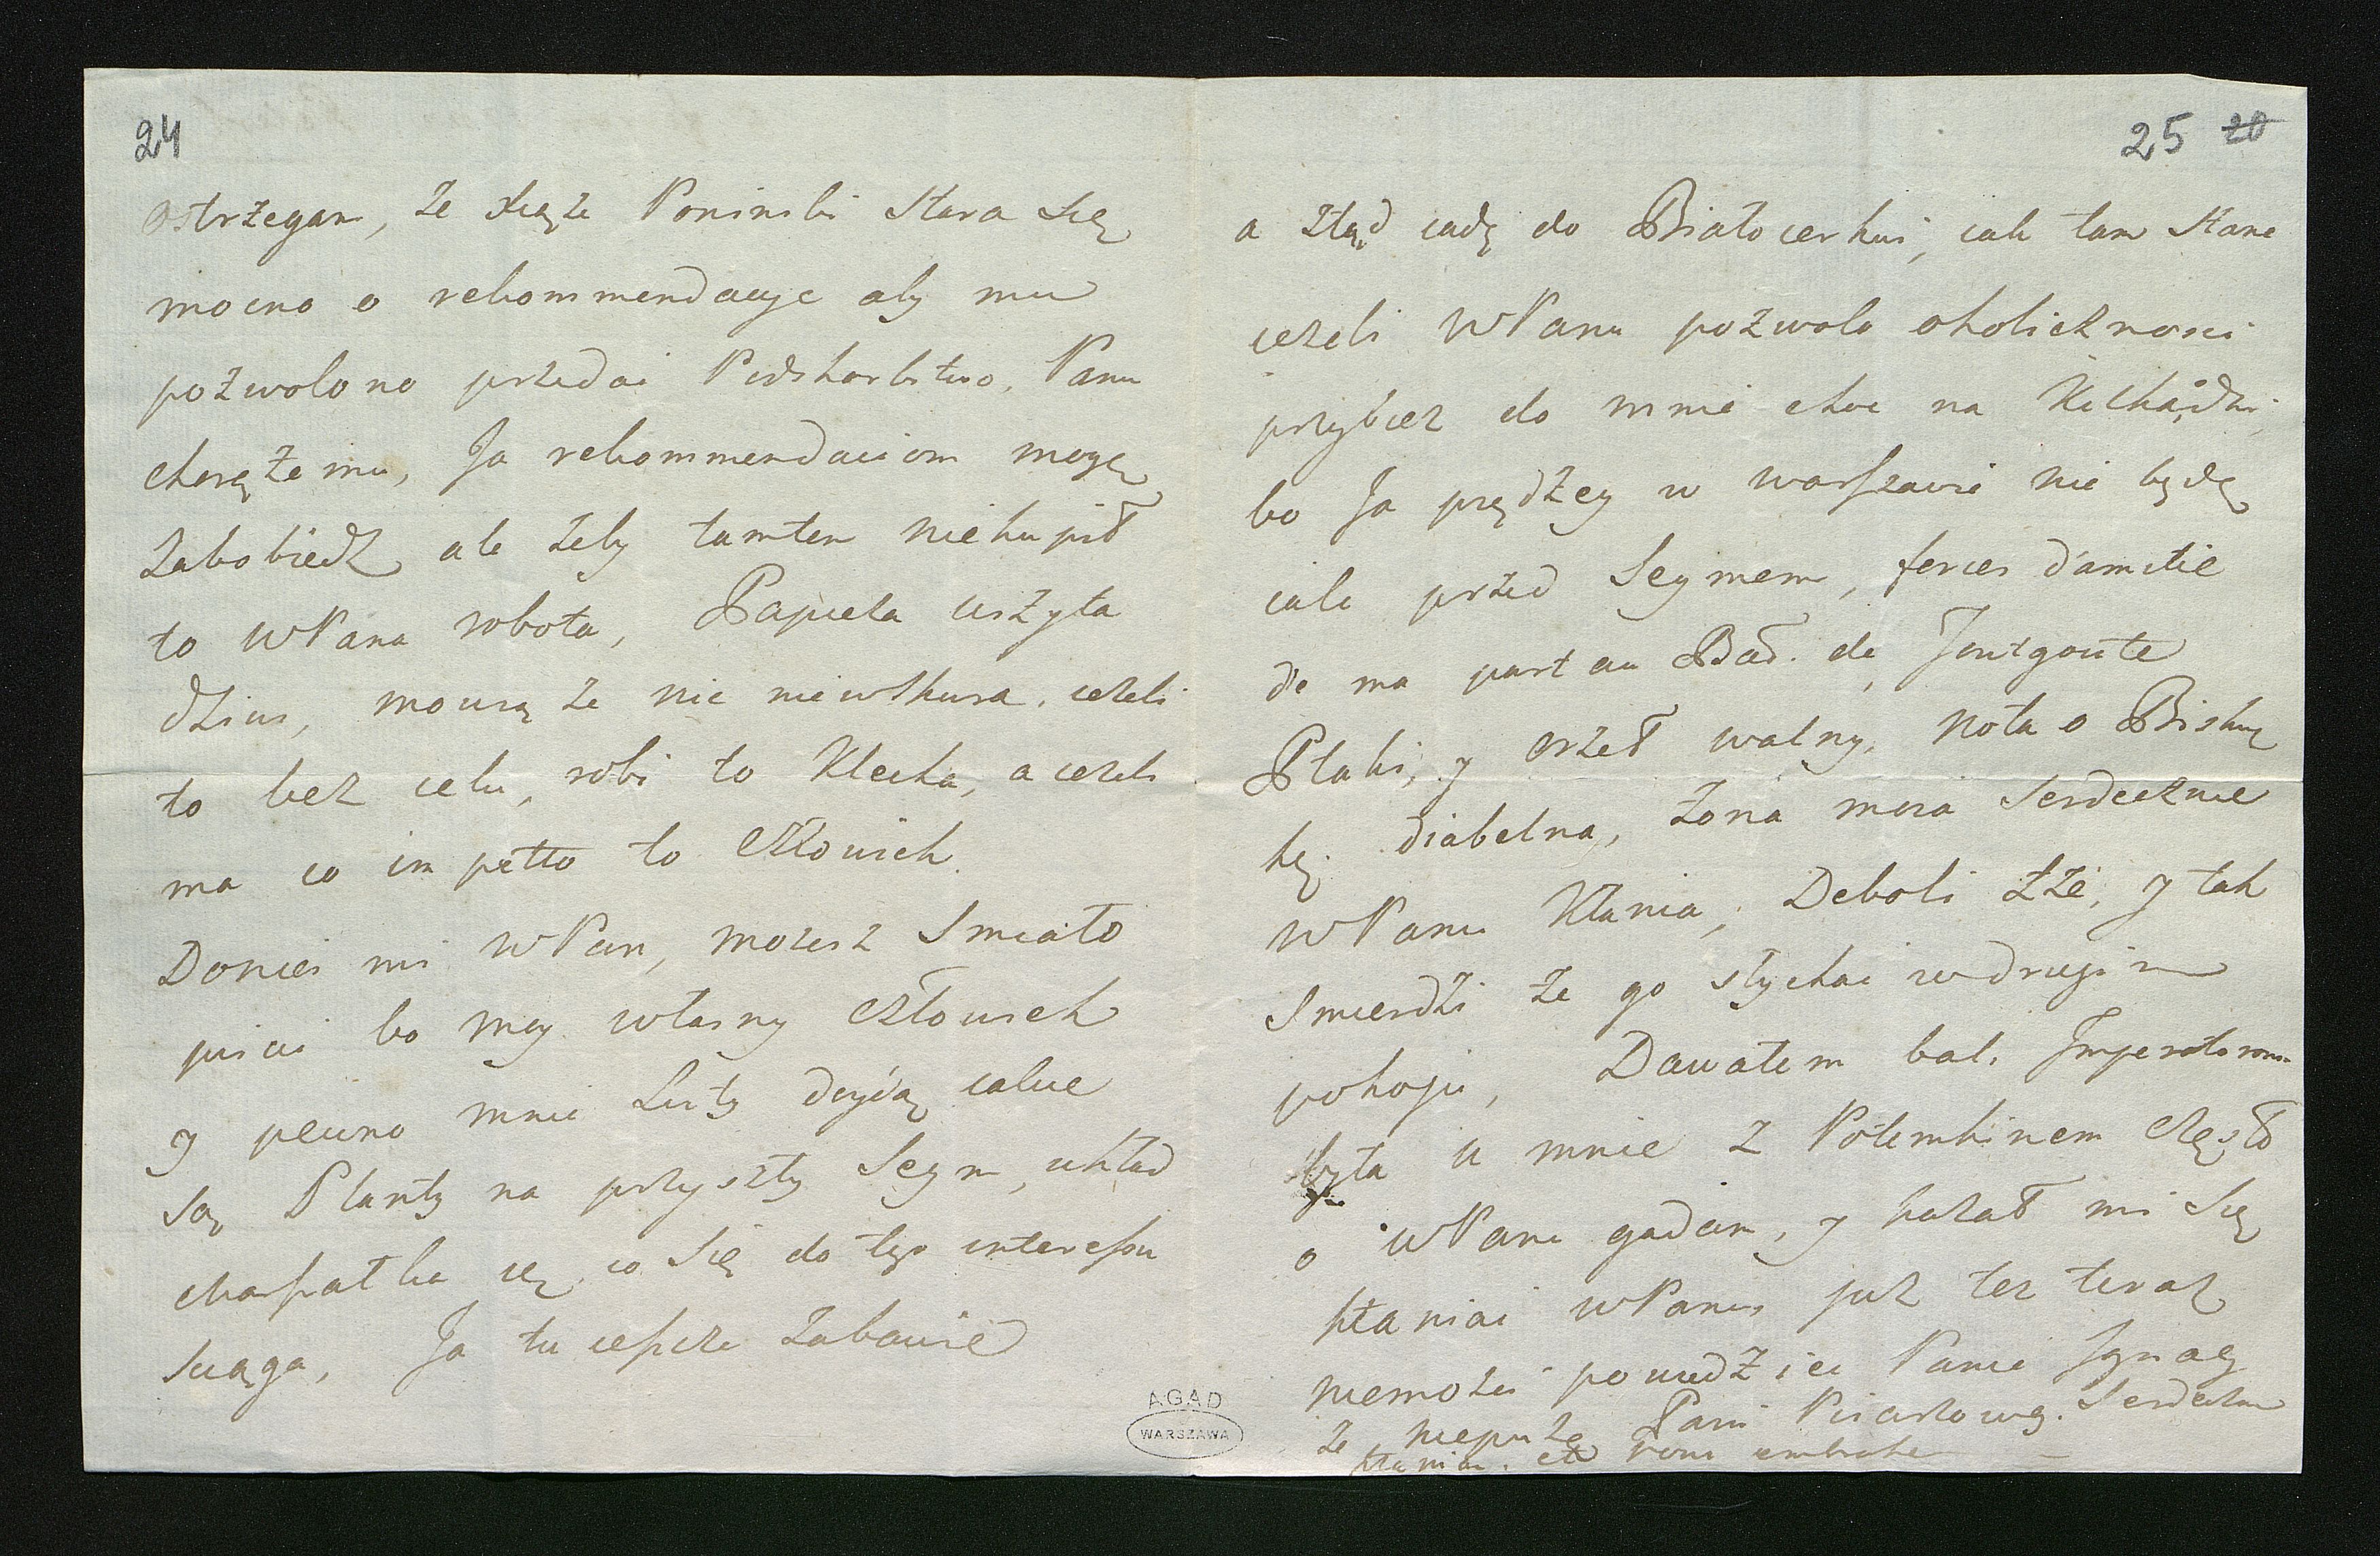 24
ostrzegam, że xiąże Poninski stara się
mocno o rekommendacyc aby mu
pozwolono przedai Podskarbstwo, Panu
chorążemu, Ja rekommendaciom mogę
zabobiedz ale żeby tamten niekupił
to WPana robota, Papiela użyta
dzius, mowią że nic niewskura. ieżeli
to bez celu, robi to Klecha, a ieżeli
ma co in petto to Człowiek.
Donies mi WPan, możesz Smiało
pisai bo moy własny człowiek
y pewno mnie Listy doydą, iakie
są Planty na przyszły Seym, układ
co się do tego interessu
sciąga, Ja tu ieszcze zabawie
25 20
a ztąd iadę do Białocerkwi, iak tam stane
ieżeli WPanu pozwolo okolicznosci
przybież do mnie choc na
bo Ja prędzey w warszawie nie będę
iak przed Seymem, d'amitie
de ma part au Bad. de
Ptaki, y orzeł walny, nota o Bisku
kę. diabelna, żona moia Serdecznie
WPanu Kłania, Deboli łże, y tak
Smierdzi że go słychai w drugim
pokoju, Dawałem bal. Imperatorowa
była u mnie z Potemkinem często
o WPanu gadam, y kazał mi się
kłaniai WPanu już też teraz
niemożesz powiedziec Panie Ignacy
że niepisze Pani Pisarzowey. Serdecznie
kłaniam. et vous embrasse
AGAD
WARSZAWA